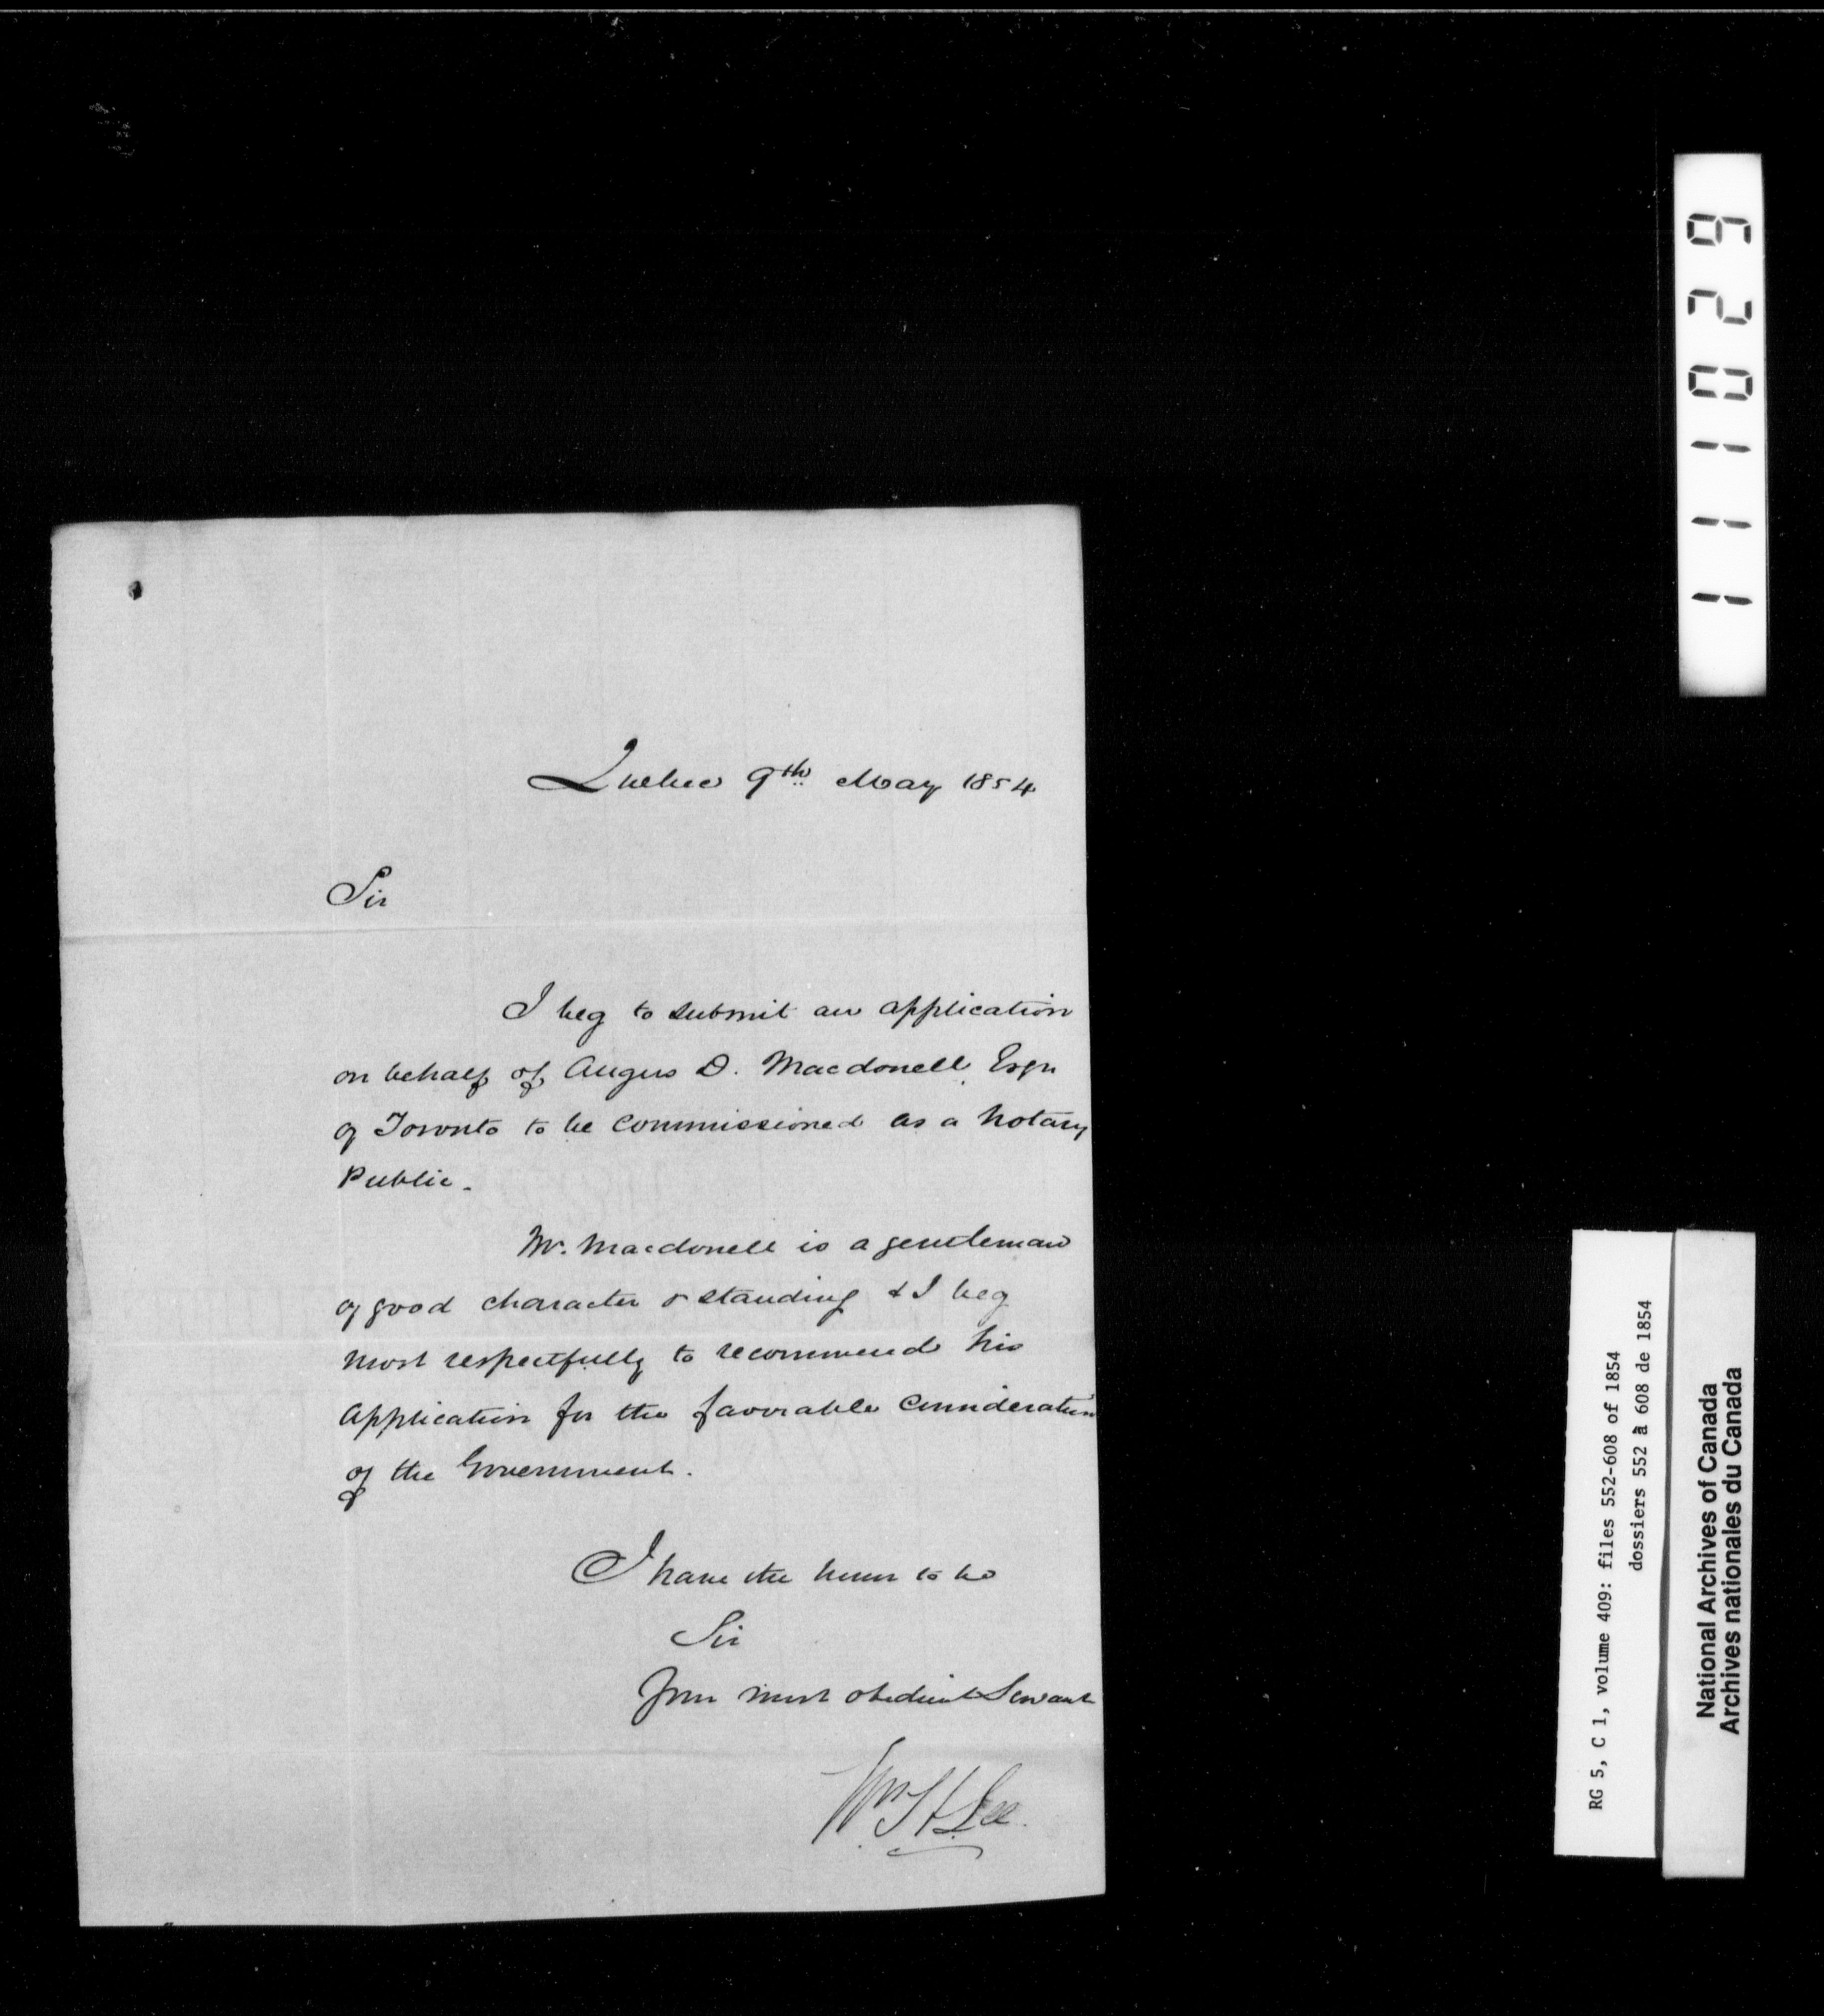 Quebec 9th May 1854
Sir
I beg to submit an application
on behalf of Angus D. Macdonell Esqr
of Toronto to be Commissioned as a Notary
Public.
Mr. Macdonell is a gentleman
of good character & standing & I beg
most respectfully to recommend his
Application for the favorable Consideration
of the Government.
I have the honor to be
Sir
Your most obedient Servant
Wm H Lee
111029
RG 5, C 1, volume 409: files 552-608 of 1854
dossiers 552 à 608 de 1854
National Archives of Canada
Archives nationales du Canada